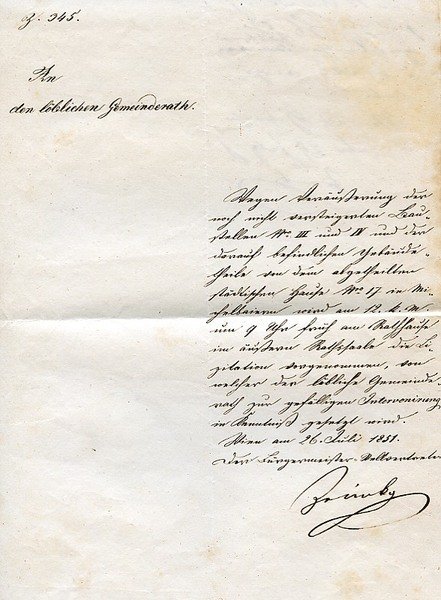 Z. 345.
An
den löblichen Gemeinderath.
Wegen Veräußerung der
noch nicht versteigerten Bau-
stellen No. III und IV und der
darauf befindlichen Gebäude-
theile von dem abgetheilten
städtischen Hause No 17 in Mi-
chelbaiern wird am 12. k. M.
um 9 Uhr früh am Rathhause
im äußern Rathssaale die Li-
zitation vorgenommen, von
welcher der löbliche Gemeinde-
rath zur gefälligen Intervenirung
in Kenntniß gesetzt wird.
Wien am 26. Juli 1851.
Der Bürgermeister-Stellvertreter